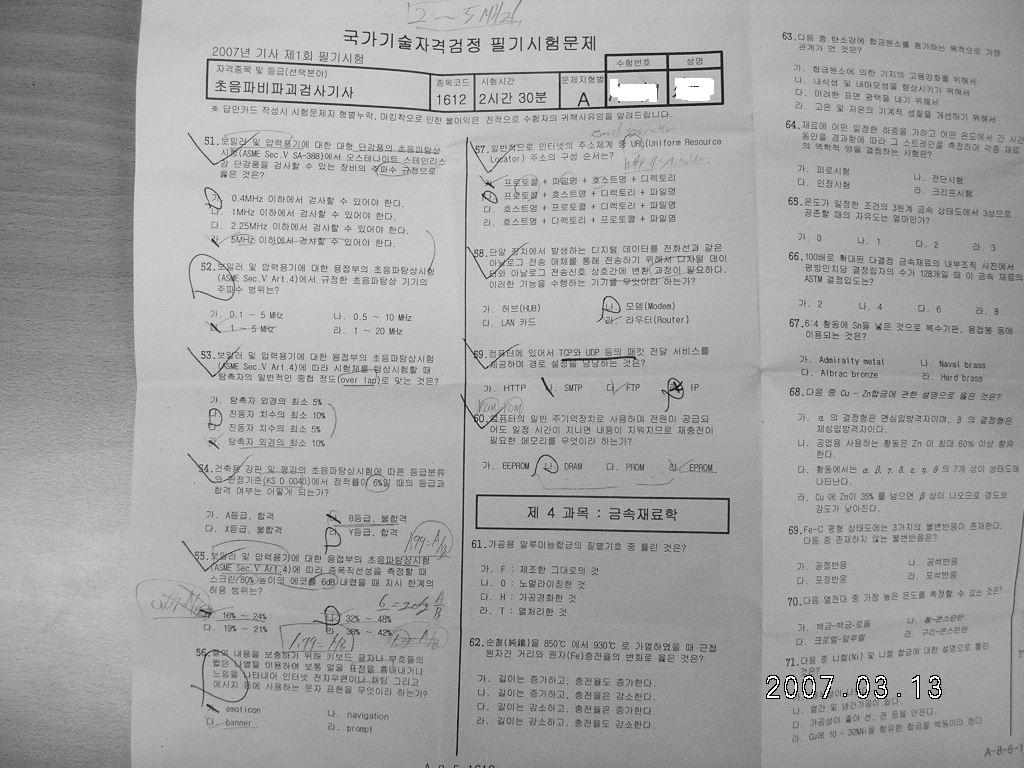 2 ~ 5 MHz
국가기술자격검정 필기시험문제
2007년 기사 제1회 필기시험
수험번호 성명
자격종목 및 등급(선택분야) 종목코드 시험시간 문제지형별
초음파비파괴검사기사 1612 2시간 30분 A
※ 답안카드 작성시 시험문제지 형별누락, 마킹착오로 인한 불이익은 전적으로 수험자의 귀책사유임을 알려드립니다.
51. 보일러 및 압력용기에 대한 대형 단강품의 초음파탐상
시험(ASME Sec.V SA-388)에서 오스테나이트 스테인리스
강 단강품을 검사할 수 있는 장비의 주파수 규정으로
옳은 것은?
가. 0.4MHz 이하에서 검사할 수 있어야 한다.
나. 1MHz 이하에서 검사할 수 있어야 한다.
다. 2.25MHz 이하에서 검사할 수 있어야 한다.
라. 5MHz 이하에서 검사할 수 있어야 한다.
52. 보일러 및 압력용기에 대한 용접부의 초음파탐상시험
(ASME Sec.V Art.4)에서 규정한 초음파탐상 기기의
주파수 범위는?
가. 0.1 ~ 5 MHz 나. 0.5 ~ 10 MHz
다. 1 ~ 5 MHz 라. 1 ~ 20 MHz
53. 보일러 및 압력용기에 대한 용접부의 초음파탐상시험
(ASME Sec.V Art.4)에 따라 시험체를 탐상시험할 때
탐촉자의 일반적인 중첩 정도(over lap)로 맞는 것은?
가. 탐촉자 외경의 최소 5%
나. 진동자 치수의 최소 10%
다. 진동자 치수의 최소 5%
라. 탐촉자 외경의 최소 10%
54. 건축용 강판 및 평강의 초음파탐상시험에 따른 등급분류
와 판정기준(KS D 0040)에서 점적률이 6%일 때의 등급과
합격 여부는 어떻게 되는가?
가. A등급, 합격 나. B등급, 불합격
다. X등급, 불합격 라. Y등급, 합격
1.99=A/B
55. 보일러 및 압력용기에 대한 용접부의 초음파탐상시험
(ASME Sec.V Art.4)에 따라 증폭직선성을 측정할 때
스크린 80% 높이의 에코를 6dB 내렸을 때 지시 한계의
허용 범위는?
6=20log A/B
가. 16% ~ 24% 나. 32% ~ 48%
다. 19% ~ 21% 라. 38% ~ 42%
1.99=A/B
56. 글의 내용을 보충하기 위해 키보드 글자나 부호들의
짧은 나열을 이용하여 보통 얼굴 표정을 흉내내거나
느낌을 나타내어 인터넷 전자우편이나 채팅 그리고
메시지 등에 사용하는 문자 표현을 무엇이라 하는가?
가. emoticon 나. navigation
다. banner 라. prompt
57. 일반적으로 인터넷의 주소체계 중 URL(Uniform Resource
Locator) 주소의 구성 순서는?
가. 프로토콜 + 파일명 + 호스트명 + 디렉토리
나. 프로토콜 + 호스트명 + 디렉토리 + 파일명
다. 호스트명 + 프로토콜 + 디렉토리 + 파일명
라. 호스트명 + 디렉토리 + 프로토콜 + 파일명
58. 단말 장치에서 발생하는 디지털 데이터를 전화선과 같은
아날로그 전송 매체를 통해 전송하기 위해서 디지털 데이
터와 아날로그 전송신호 상호간에 변환 과정이 필요하다.
이러한 기능을 수행하는 기기를 무엇이라 하는가?
가. 허브(HUB) 나. 모뎀(Modem)
다. LAN 카드 라. 라우터(Router)
59. 컴퓨터에 있어서 TCP와 UDP 등의 패킷 전달 서비스를
제공하며 경로 설정을 담당하는 것은?
가. HTTP 나. SMTP 다. FTP 라. IP
60. 컴퓨터의 일반 주기억장치로 사용하며 전원이 공급되
어도 일정 시간이 지나면 내용이 지워지므로 재충전이
필요한 메모리를 무엇이라 하는가?
가. EEPROM 나. DRAM 다. PROM 라. EPROM
제 4 과목 : 금속재료학
61. 가공용 알루미늄합금의 질별기호 중 틀린 것은?
가. F : 제조한 그대로의 것
나. O : 노멀라이징한 것
다. H : 가공경화한 것
라. T : 열처리한 것
62. 순철(純鐵)을 850℃ 에서 930℃ 로 가열하였을 때 근접
원자간 거리와 원자(Fe)충전율의 변화로 옳은 것은?
가. 길이는 증가하고, 충전율도 증가한다.
나. 길이는 증가하고, 충전율은 감소한다.
다. 길이는 감소하고, 충전율은 증가한다.
라. 길이는 감소하고, 충전율도 감소한다.
63. 다음 중 탄소강에 합금원소를 첨가하는 목적으로 가장
관계가 먼 것은?
가. 합금원소에 의한 기지의 고용강화를 위해서
나. 내식성 및 내마모성을 향상시키기 위해서
다. 미려한 표면 광택을 내기 위해서
라. 고온 및 저온의 기계적 성질을 개선하기 위해서
64. 재료에 어떤 일정한 하중을 가하고 어떤 온도에서 긴 시간
동안을 경과함에 따라 그 스트레인을 측정하여 각종 재료
의 역학적 양을 결정하는 시험은?
가. 피로시험 나. 전단시험
다. 인장시험 라. 크리프시험
65. 온도가 일정한 조건의 3원계 금속 상태도에서 3상으로
공존할 때의 자유도는 얼마인가?
가. 0 나. 1 다. 2 라. 3
66. 100배로 확대된 다결정 금속재료의 내부조직 사진에서
평방인치당 결정립자의 수가 128개일 때 이 금속 재료의
ASTM 결정입도는?
가. 2 나. 4 다. 6 라. 8
67. 6:4 황동에 Sn을 넣은 것으로 복수기판, 용접봉 등에
이용되는 것은?
가. Admiralty metal 나. Naval brass
다. Albrac bronze 라. Hard brass
68. 다음 중 Cu - Zn합금에 관한 설명으로 옳은 것은?
가. α 의 결정형은 면심입방격자이며, β 의 결정형은
체심입방격자이다.
나. 공업용 사용하는 황동은 Zn 이 최대 60% 이상 함유
한다.
다. 황동에서는 α, β, γ, δ, ε, η, θ 의 7개 상이 상태도에
나타난다.
라. Cu 에 Zn이 35% 를 넘으면 β 상이 나오므로 경도와
강도가 낮아진다.
69. Fe-C 평형 상태도에는 3가지의 불변반응이 존재한다.
다음 중 존재하지 않는 불변반응은?
가. 공정반응 나. 공석반응
다. 포정반응 라. 포석반응
70. 다음 열전대 중 가장 높은 온도를 측정할 수 있는 것은?
가. 백금-백금·로듐 나. 철-콘스탄탄
다. 크로멜-알루멜 라. 구리-콘스탄탄
71. 다음 중 니켈(Ni) 및 니켈 합금에 대한 설명으로 틀린
것은?
나. 열간 및 냉간가공이 쉽다.
다. 가공성이 좋아 선, 관 등을 만든다.
라. Cu에 10 ~ 30%Ni을 함유한 합금을 백동이라 한다.
2007.03.13
A-8-5-1612
A-8-6-1